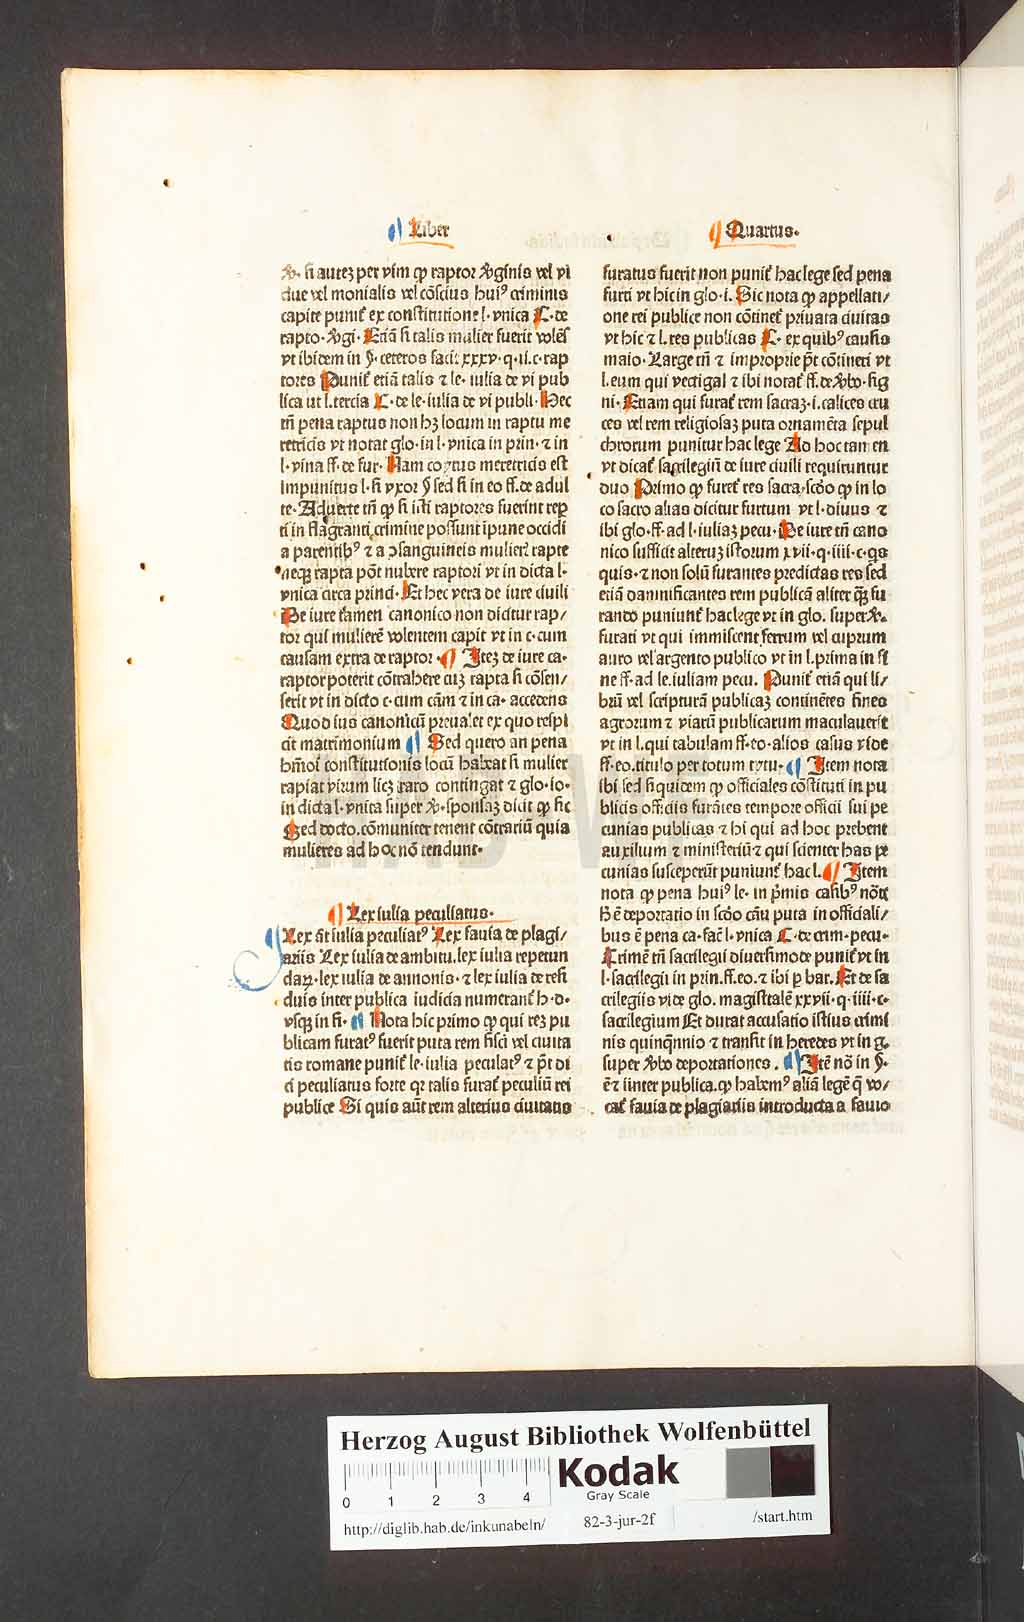 Liber
Quartus.
℣. si autez per vim ꝙ raptor ℣ginis vel vi
due vel monialis vel cōscius huiꝰ criminis
capite punit᷑ ex constitutione l. vnica C. de
rapto. ℣gi. Etiā si talis mulier fuerit volēs
vt ibidem in §. ceteros facit xxxv. q. ii. c. rap
tores Punit᷑ etiā talis ⁊ le. iulia de vi pub
lica ut l. tercia C. de le. iulia de vi publi. Hec
tn̄ pena raptus non hꝫ locum in raptu me
retricis vt notat glo. in l. vnica in prin. ⁊ in
l. vina ff. de fur. Nam coytus meretricis est
impunitus l. si vxor § sed si in eo ff. de adul
te. Aduerte tn̄ ꝙ si isti raptores fuerint rep
ti in flagranti crimine possunt īpune occidi
a parentibꝰ ⁊ a ↄsanguineis mulier᷑ rapte
neqꝫ rapta pōt nubere raptori vt in dicta l.
vnica circa princi. Et hec vera de iure ciuili
De iure tamen canonico non dicitur rap/
tor qui mulierē volentem capit vt in c. cum
causam extra de raptor. Itez de iure ca.
raptor poterit cōtrahere cuz rapta si cōsen/
serit vt in dicto c. cum cām ⁊ in ca. accedens
Quod ius canonicū preualet ex quo respi
cit matrimonium Sed quero an pena
hm̄oi constitutionis locū habeat si mulier
rapiat virum licꝫ raro contingat ⁊ glo. io.
in dicta l. vnica super ℣. sponsaz dicit ꝙ sic
Sed docto. cōmuniter tenent cōtrariū quia
mulieres ad hoc nō tendunt.
Lex iulia peculiatus.
Lex āt iulia peculiatꝰ Lex fauia de plagi/
ariis Lex iulia de ambitu. lex iulia repetun
daꝝ. lex iulia de annonis. ⁊ lex iulia de resi
duis inter publica iudicia numerant᷑ h. d.
vsqꝫ in fi. Nota hic primo ꝙ qui rez pu
blicam furatꝰ fuerit puta rem fisci vel ciuita
tis romane punit᷑ le. iulia peculatꝰ ⁊ pt̄ di
ci peculiatus forte qr talis furat᷑ peculiū rei
publice Si quis aūt rem alterius ciuitatis
furatus fuerit non punit᷑ hac lege sed pena
furti vt hic in glo. i. Sic nota ꝙ appellati/
one rei publice non cōtinet᷑ priuata ciuitas
vt hic ⁊ l. res publicas C. ex quibꝰ causis
maio. Large tn̄ ⁊ improprie pt̄ cōtineri vt
l. eum qui vectigal ⁊ ibi notat᷑ ff. de ℣bo. sig
ni. Etiam qui furat᷑ rem sacraz. i. calices cru
ces vel rem religiosaz puta ornamēta sepul
chrorum punitur hac lege Ad hoc tam en
vt dicat᷑ sacrilegiū de iure ciuili requiruntur
duo Primo ꝙ furet᷑ res sacra. scd̄o ꝙ in lo
co sacro alias dicitur furtum vt l. diuus ⁊
ibi glo. ff. ad l. iuliaz pecu. De iure tn̄ cano
nico sufficit alteruz istorum xvii. q. iiii. c. qs
quis. ⁊ non solū furantes predictas res sed
etiā damnificantes rem publicā aliter qꝫ fu
rando puniunt᷑ hac lege vt in glo. super ℣.
furati vt qui immiscent ferrum vel cuprum
auro vel argento publico vt in l. prima in fi
ne ff. ad le. iuliam pecu. Punit᷑ etiā qui li/
brū vel scripturā publicaz continētes fines
agrorum ⁊ viarū publicarum maculauerit
vt in l. qui tabulam ff. eo. alios casus vide
ff. eo. titulo per totum tytu. Item nota
ibi sed siquidem ꝙ officiales cōstituti in pu
blicis officiis furātes tempore officii sui pe
cunias publicas ⁊ hi qui ad hoc prebent
auxilium ⁊ ministeriū ⁊ qui scienter has pe
cunias susceperūt puniunt᷑ hac l. Item
nota ꝙ pena huiꝰ le. in p̄mis casibꝰ nōtꝫ
Bē deportatio in scd̄o cāu puta in officiali/
bus ē pena ca. facit l. vnica C. de crim. pecu.
Crimē tn̄ sacrilegii diuersimode punit᷑ vt in
l. sacrilegii in prin. ff. eo. ⁊ ibi ꝑ bar. Et de sa
crilegiis vide glo. magistralē xxvii. q. iiii. c.
sacrilegium Et durat accusatio istius crimi
nis quinqnnio ⁊ transit in heredes vt in g.
super ℣bo deportationes. Itē nō in §.
ē ⁊ iinter publica. ꝙ habemꝰ aliā legē q̄ vo/
cat᷑ fauia de plagiariis introducta a fauio
HAB WF
Herzog August Bibliothek Wolfenbüttel
0 1 2 3 4
Kodak
Gray Scale
http://diglib.hab.de/inkunabeln/
82-3-jur-2f
/start.htm